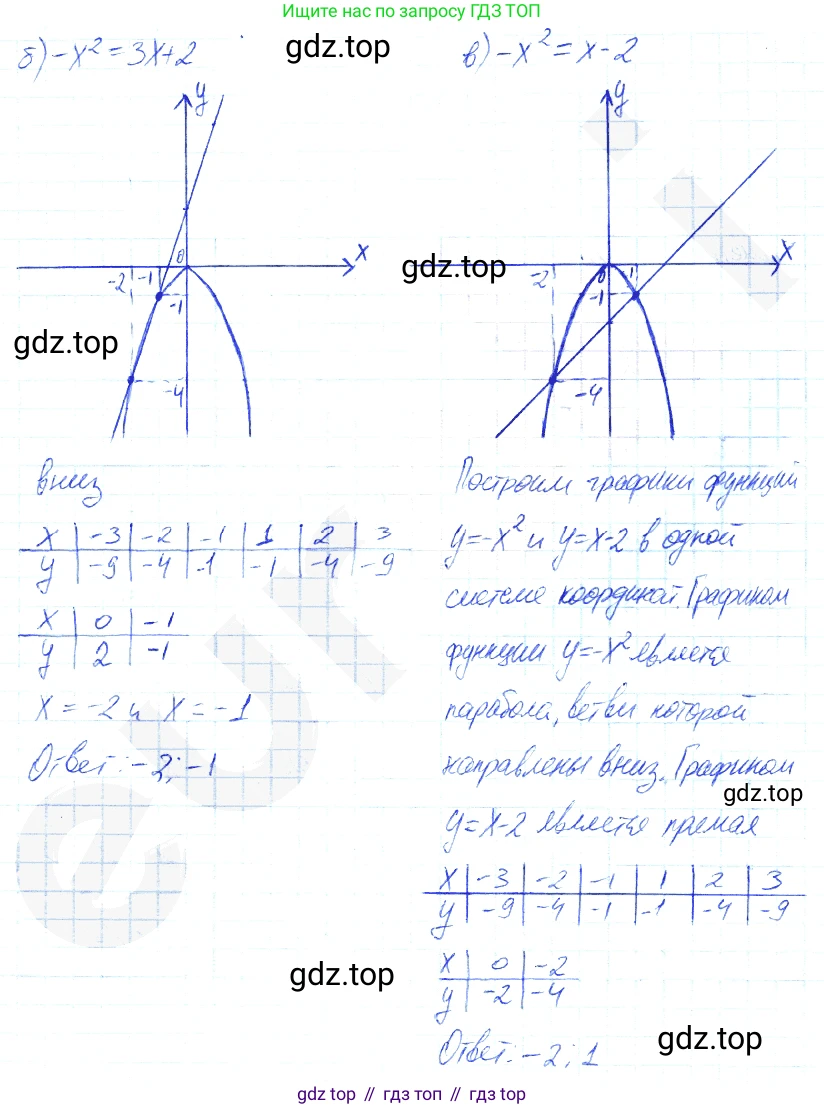 Ищите нас по запросу ГДЗ ТОП
б) -x² = 3x+2
gdz.top
в) -x² = x-2
y
x
0
-2 -1
-1
-4
gdz.top
y
x
0
1
-2
-1
-4
gdz.top
вниз
x | -3 | -2 | -1 | 1 | 2 | 3
y | -9 | -4 | -1 | -1 | -4 | -9
x | 0 | -1
y | 2 | -1
x = -2 и x = -1
Ответ: -2; -1
Построим графики функций
y=-x² и y=x-2 в одной
системе координат. Графиком
функции y=-x² является
парабола, ветви которой
направлены вниз. Графиком
gdz.top
y=x-2 является прямая
x | -3 | -2 | -1 | 1 | 2 | 3
y | -9 | -4 | -1 | -1 | -4 | -9
x | 0 | -2
y | -2 | -4
gdz.top
Ответ: -2; 1
gdz.top
gdz top // гдз топ // gdz.top